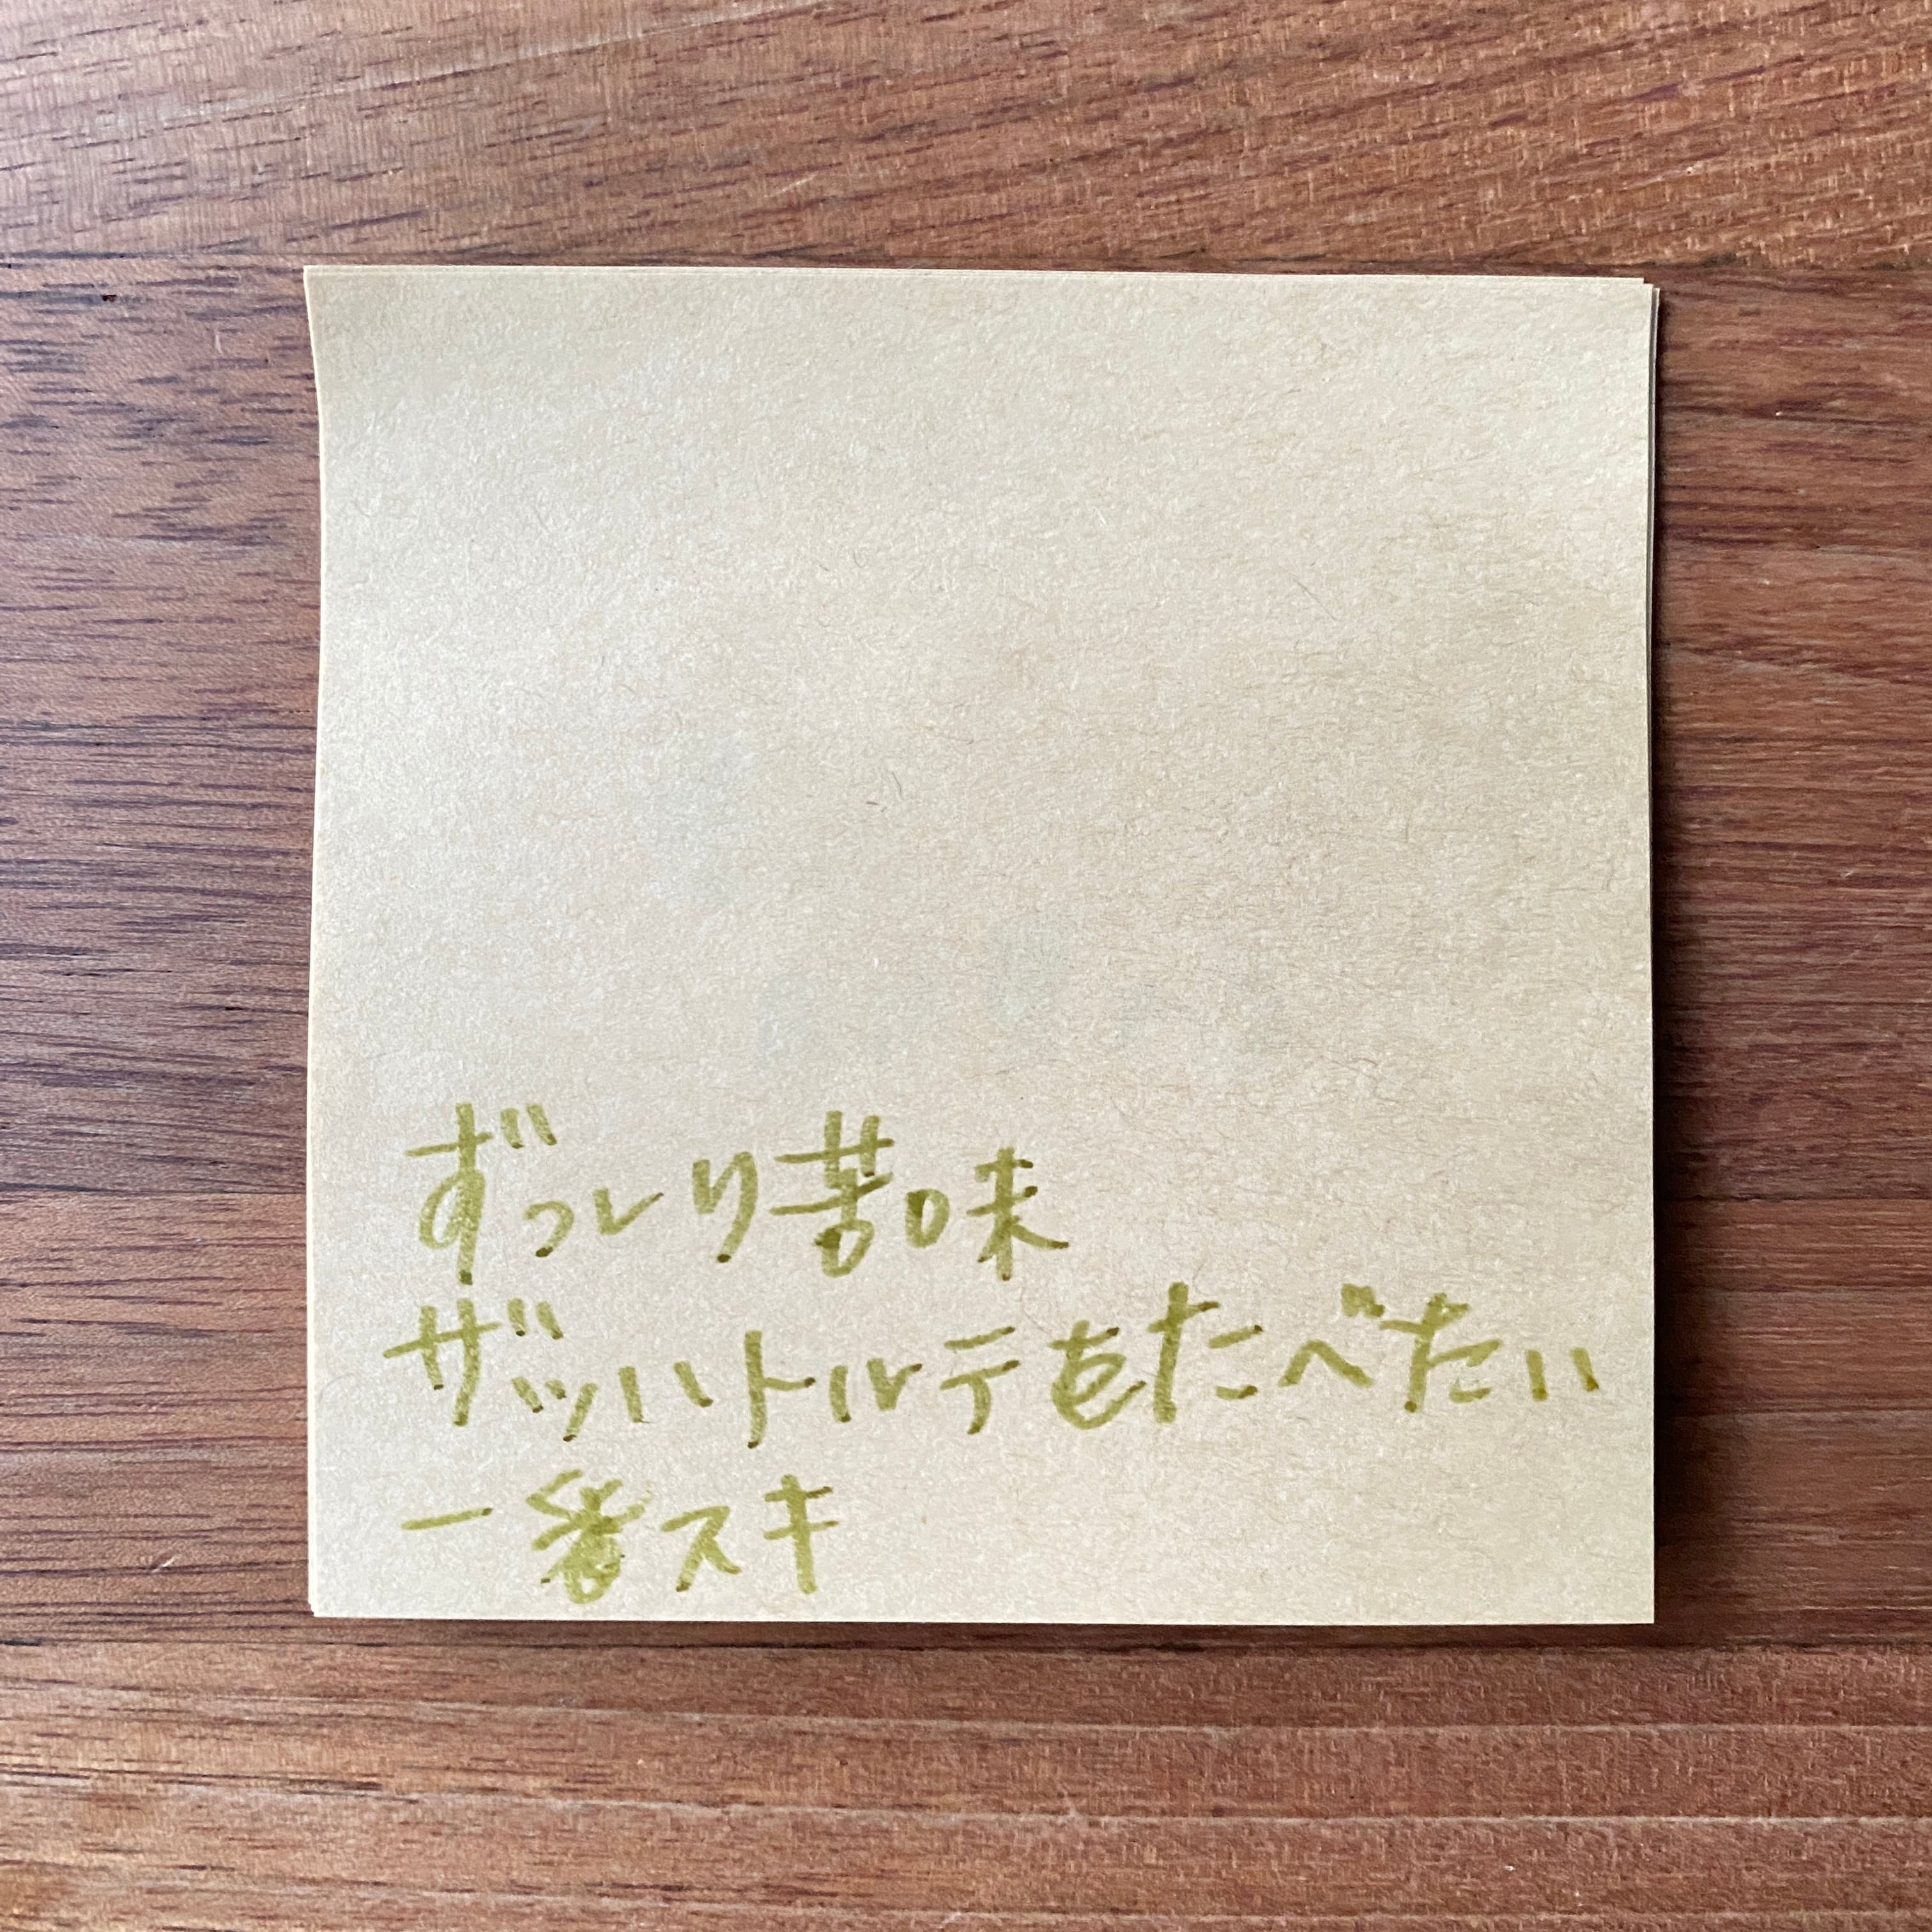 ずっしり苦味
ザッハトルテをたべたい
一番スキ